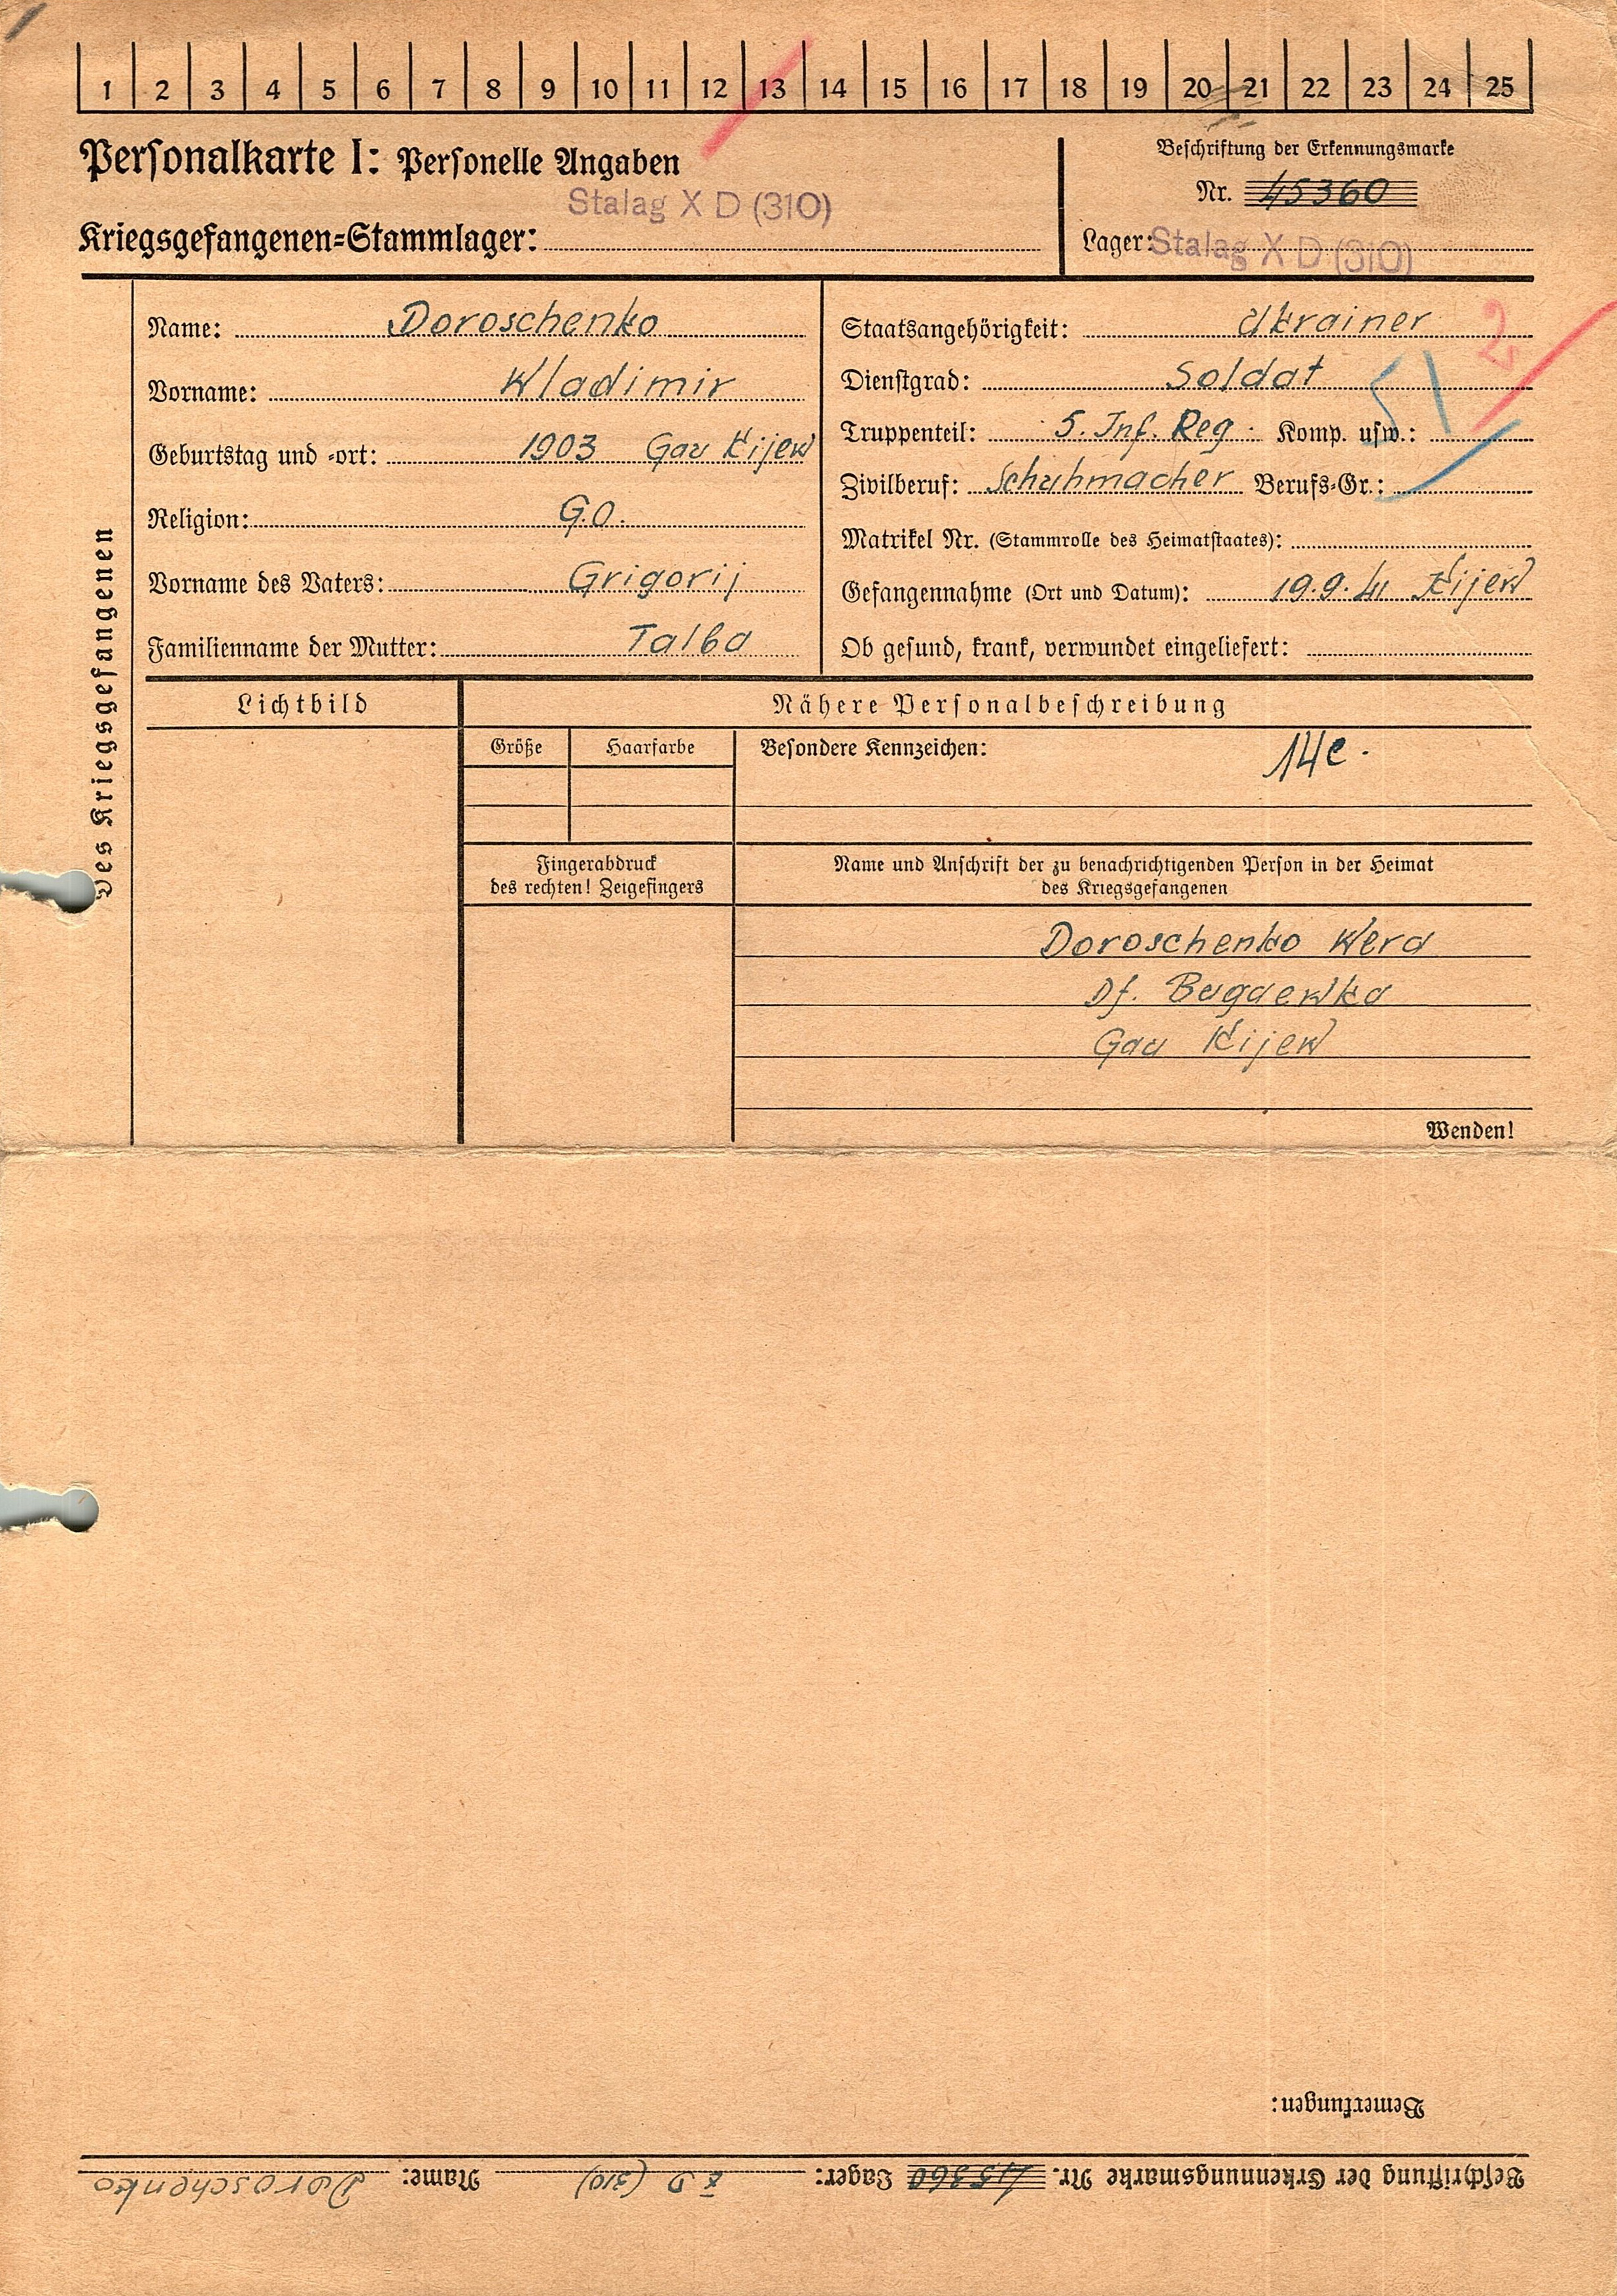 1 2 3 4 5 6 7 8 9 10 11 12 13 14 15 16 17 18 19 20 21 22 23 24 25
Personalkarte I: Personelle Angaben
Stalag X D (310)
Kriegsgefangenen-Stammlager:
Beschriftung der Erkennungsmarke
Nr. 45360
Lager: Stalag X D (310)
Des Kriegsgefangenen
Name: Doroschenko
Vorname: Wladimir
Geburtstag und -ort: 1903 Gau Kijew
Religion: G.O.
Vorname des Vaters: Grigorij
Familienname der Mutter: Talba
Staatsangehörigkeit: Ukrainer
2
Dienstgrad: Soldat
Truppenteil: 5. Inf. Reg. Komp. usw.:
Zivilberuf: Schuhmacher Berufs-Gr.:
Matrikel Nr. (Stammrolle des Heimatstaates):
Gefangennahme (Ort und Datum): 19.9.41 Kijew
Ob gesund, krank, verwundet eingeliefert:
Lichtbild
Nähere Personalbeschreibung
Größe
Haarfarbe
Besondere Kennzeichen: 14c.
Fingerabdruck
des rechten! Zeigefingers
Name und Anschrift der zu benachrichtigenden Person in der Heimat
des Kriegsgefangenen
Doroschenko Wera
Df. Bugaewka
Gau Kijew
Wenden!
Bemerkungen:
Beschriftung der Erkennungsmarke Nr. 45360 Lager: X D (310) Name: Doroschenko